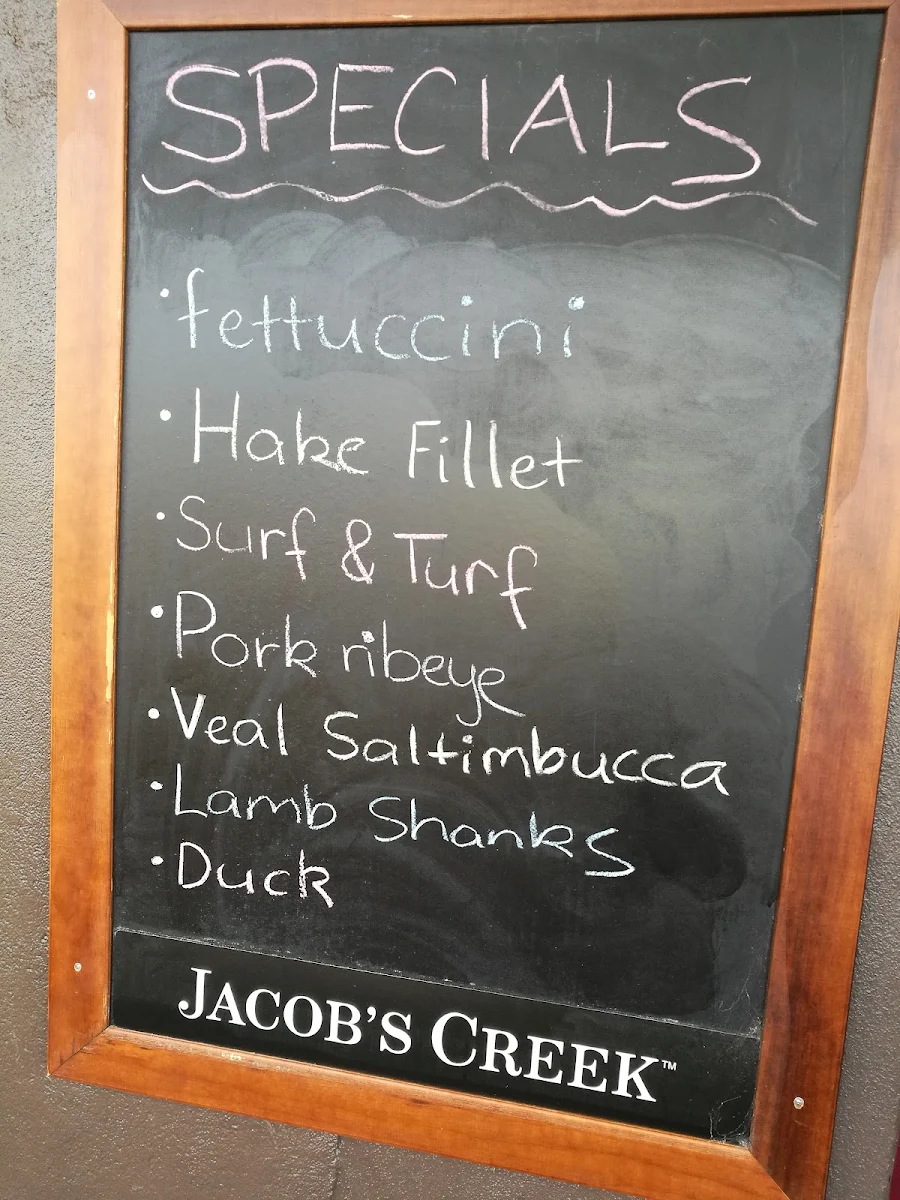 SPECIALS
• fettuccini
• Hake Fillet
• Surf & Turf
• Pork ribeye
• Veal Saltimbucca
• Lamb Shanks
• Duck
JACOB'S CREEK™